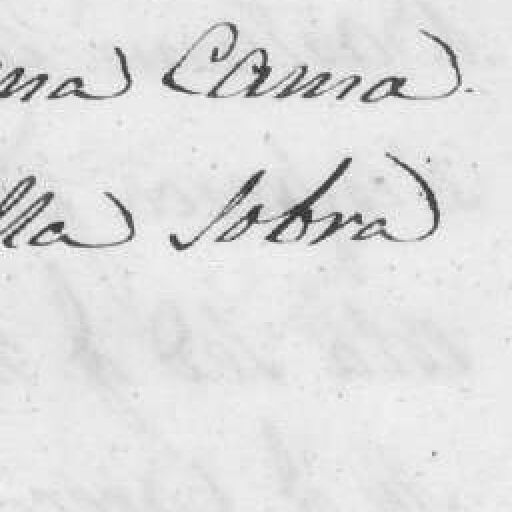 ma Cama.
lla sobra